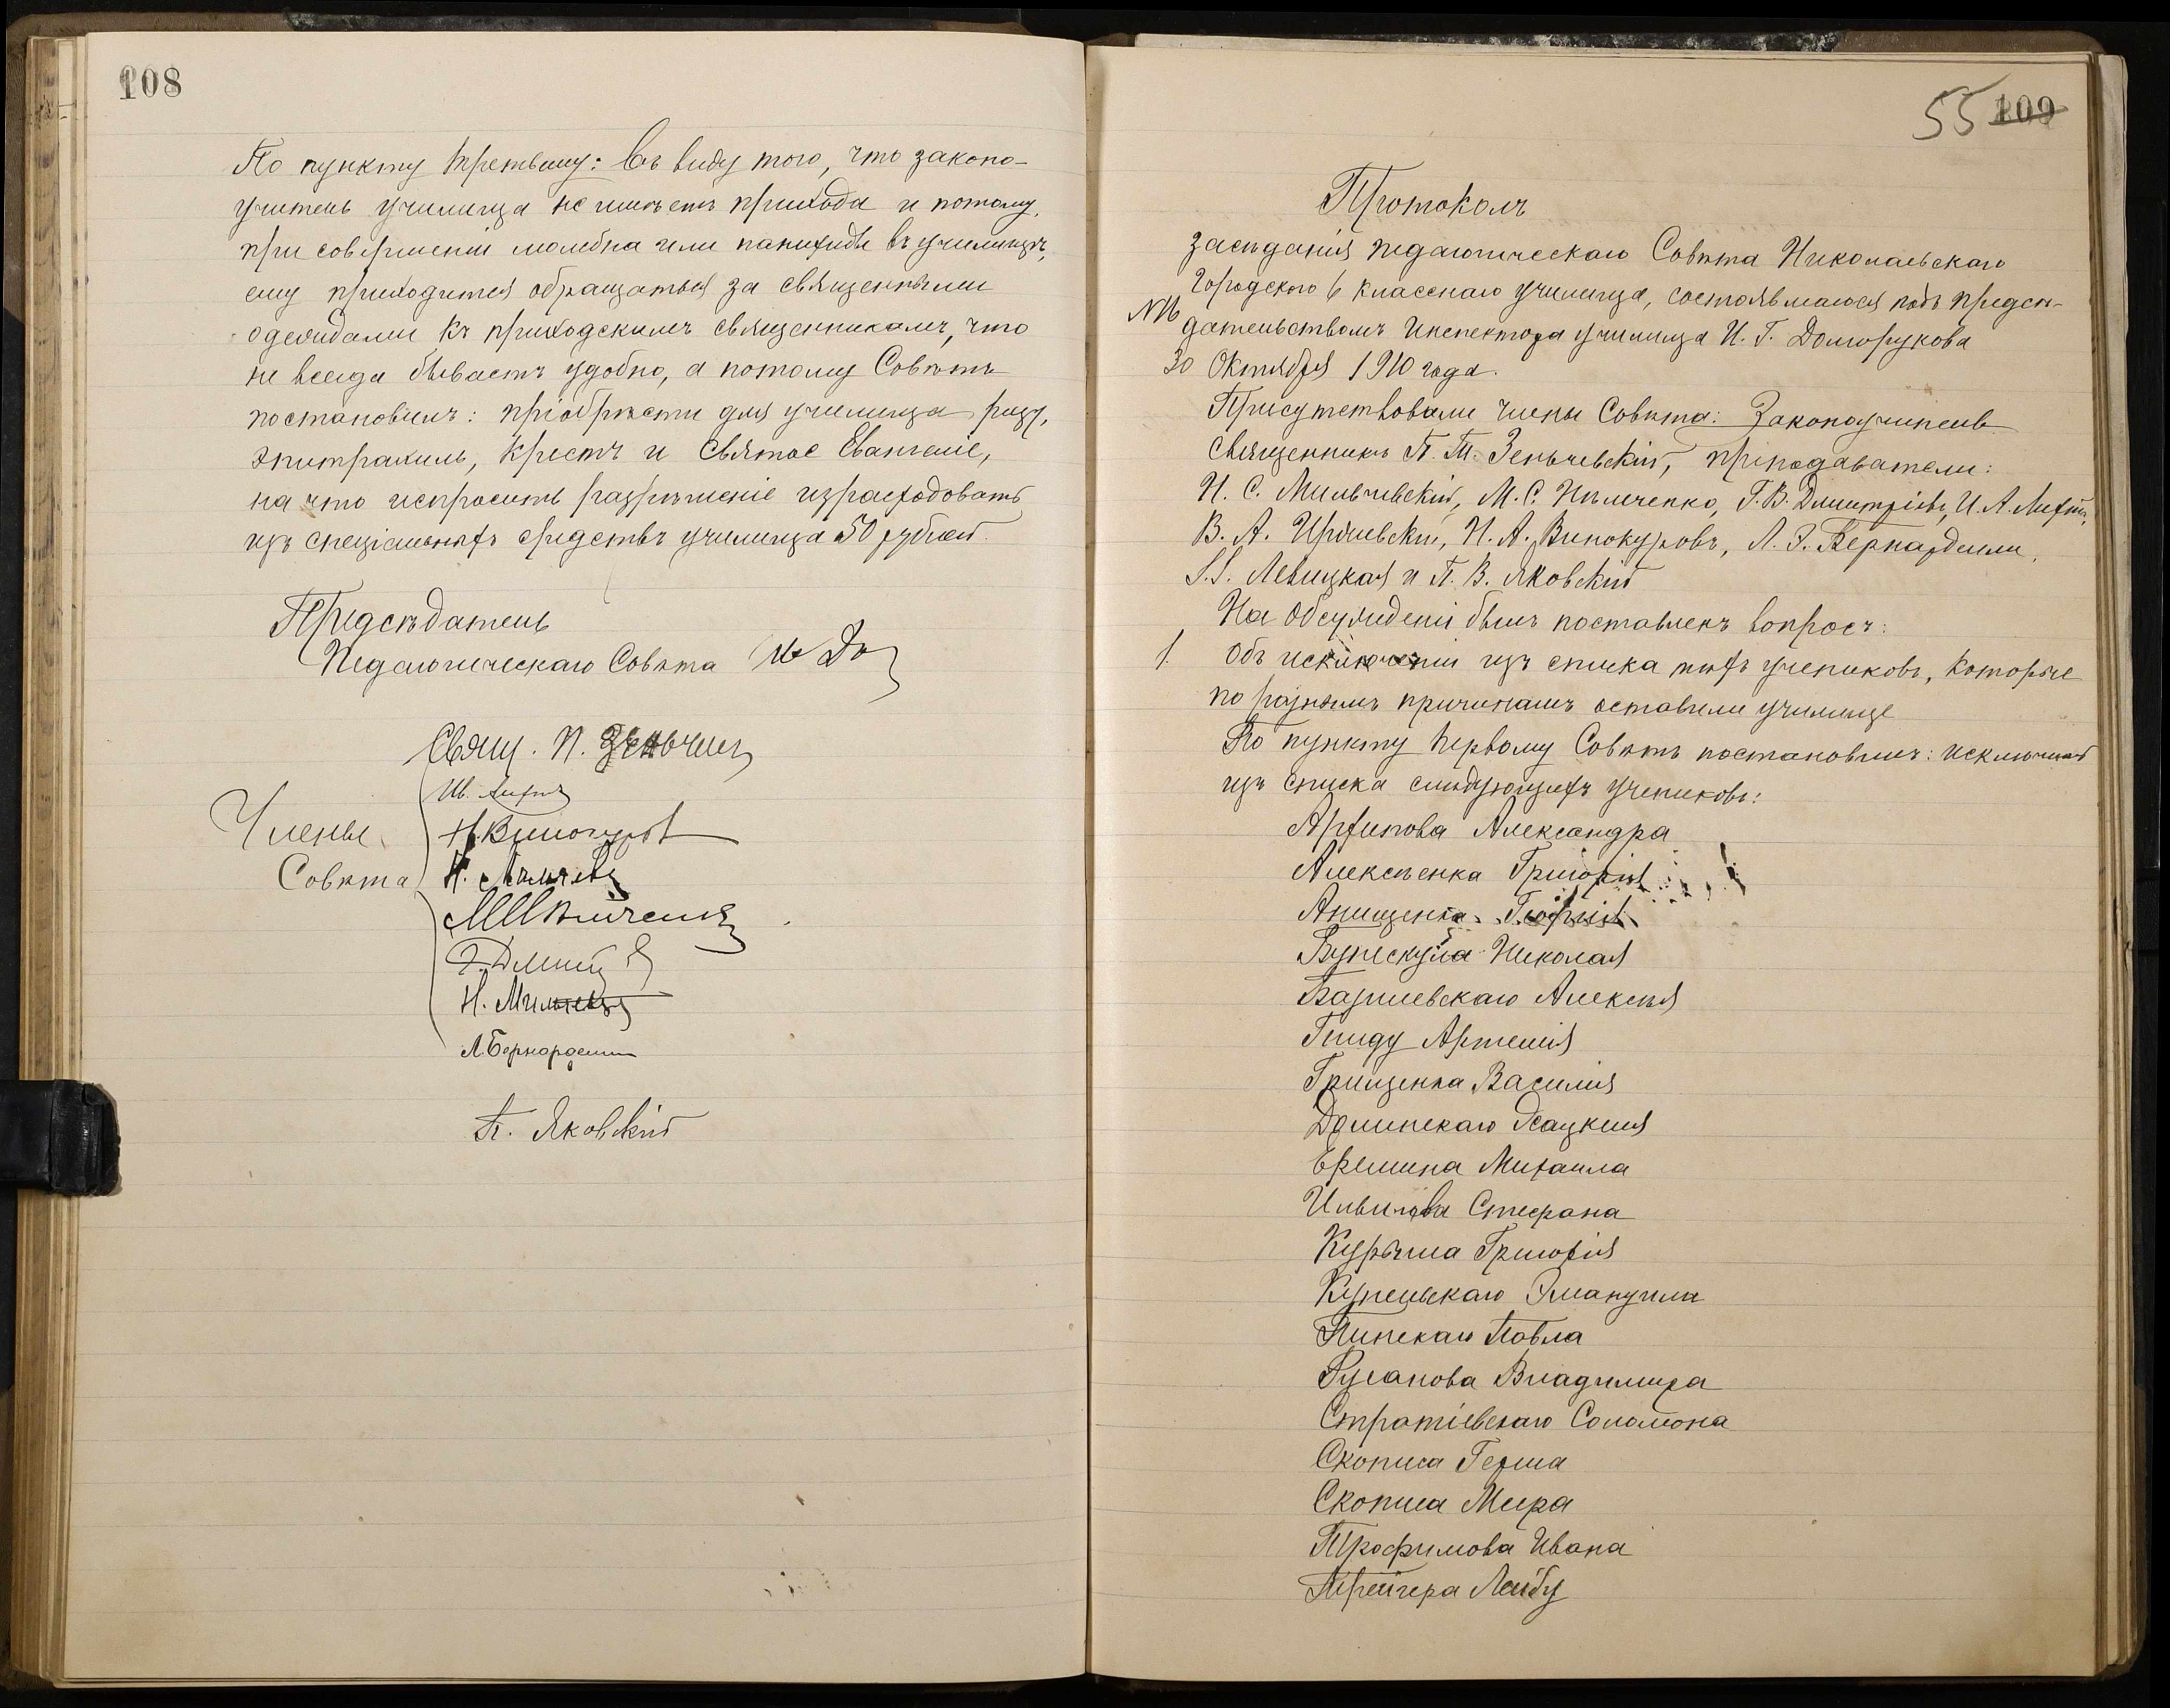 108
По пункту третьему: Въ виду того, что законо-
учитель училища не имѣетъ прихода и потому,
при совершеніи молебна или панихиды въ училищѣ,
ему приходится обращаться за священными
одеждами къ приходскимъ священникамъ, что
не всегда бываетъ удобно, а потому Совѣтъ
постановилъ: пріобрѣсти для училища ризу,
эпитрахиль, крестъ и Святое Евангеліе,
на что испросить разрѣшеніе израсходовать
изъ спеціальныхъ средствъ училища 50 рублей.
Предсѣдатель
Педагогическаго Совѣта
Свящ. П.
Члены
Совѣта
Н. Винокуровъ
Л. Бернардацци
П. Яковскій
55 109
Протоколъ
засѣданія педагогическаго Совѣта Николаевскаго
Городского 6 класснаго училища, состоявшагося подъ предсѣ-
дательствомъ Инспектора училища И. Г. Долгорукова
30 Октября 1910 года.
Присутствовали члены Совѣта: Законоучитель
Священникъ П. Т. Зеньчевскій, преподаватели:
Н. С. Мильчевскій, М. С. Ильченко, Г. В. Дмитріевъ, И. А.
В. А. Н. А. Винокуровъ, Л. Э. Бернардацци,
Левицкая и П. В. Яковскій
На обсужденіи былъ поставленъ вопросъ:
1. Объ исключеніи изъ списка тѣхъ учениковъ, которые
по разнымъ причинамъ оставили училище
По пункту первому Совѣтъ постановилъ: исключить
изъ списка слѣдующихъ учениковъ:
Архипова Александра
Алексѣенка Григорія
Анищенка Георгія
Бунескула Николая
Базилевскаго Алексѣя
Гниду Артемія
Грищенка Василія
Долинскаго Исаакія
Еремина Михаила
Стефана
Григорія
Эмануила
Пинскаго Павла
Русанова Владимира
Стратіевскаго Соломона
Скописа Герша
Скописа Меера
Трофимова Ивана
Трейгера Лейбу